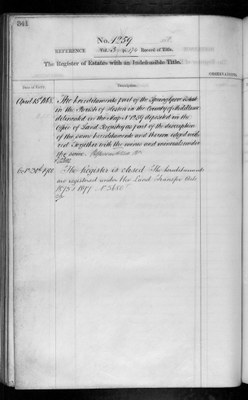 344.
No. 1259
REFERENCE Vol. 3 p. 174 Record of Title.
The Register of Estates with an Indefeasible Title.
OBSERVATIONS.
Date of Entry. Description.
April 15th 188 The hereditaments part of the Spring Grove Estate
in the Parish of Heston in the County of Middlesex
delineated on the Map No. 1259 deposited in the
Office of Land Registry as part of the description
of the same hereditaments and thereon edged with
red Together with the mines and minerals under
the same.
Oct. 1901 The Register is closed. The hereditaments
are registered under the Land Transfer Acts
1875 & 1897.